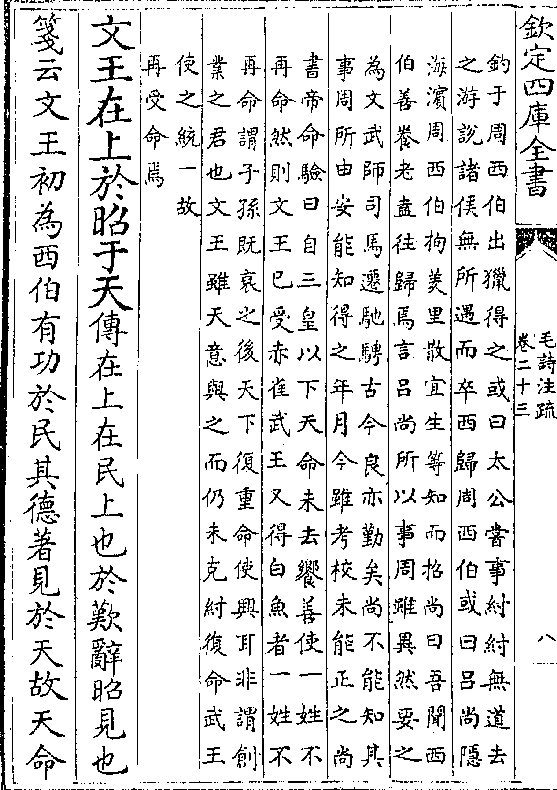 欽定四庫全書
毛詩注疏
卷二十三
八
釣于周西伯出獵得之或曰太公嘗事紂紂無道去
之游説諸侯無所遇而卒西歸周西伯或曰吕尚隠
海濱周西伯拘羑里散宜生等知而招尚曰吾聞西
伯善養老盍往歸焉言吕尚所以事周雖異然要之
為文武師司馬遷馳騁古今良亦勤矣尚不能知其
事周所由安能知得之年月今雖考校未能正之尚
書帝命驗曰自三皇以下天命未去饗善使一姓不
再命然則文王已受赤雀武王又得白魚者一姓不
再命謂子孫既衰之後天下復重命使興耳非謂創
業之君也文王雖天意與之而仍未克紂復命武王
使之統一故
再受命焉
文王在上於昭于天傳在上在民上也於歎辭昭見也
箋云文王初為西伯有功於民其德著見於天故天命